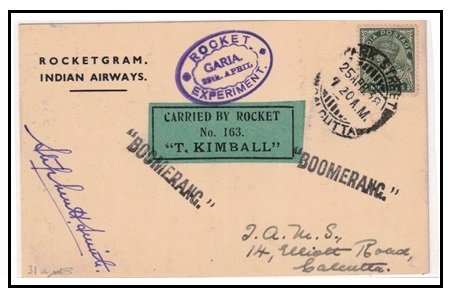 ROCKETGRAM.
INDIAN AIRWAYS.
ROCKET
GARIA.
25th. APRIL
EXPERIMENT.
INDIA POSTAGE
25 APR 38
7 20 A.M.
CALCUTTA
CARRIED BY ROCKET
No. 163.
"T. KIMBALL"
"BOOMERANG."
"BOOMERANG."
Stephen H. Smith.
I.A.M.S.,
14, Elliott Road,
Calcutta.